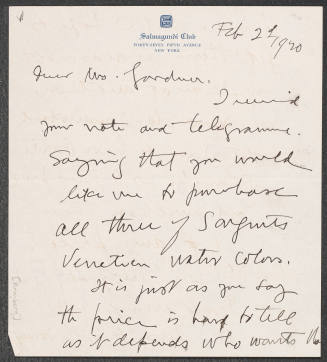 Salmagundi Club
FORTY-SEVEN FIFTH AVENUE
NEW YORK
Feb 2d/1920
Dear Mrs. Gardner.
I received
your note and telegramme.
Saying that you would
like me to purchase
all three of Sargents
Venetian water colors.
It is just as you say
th price is hard to tell
as it depends who wants th